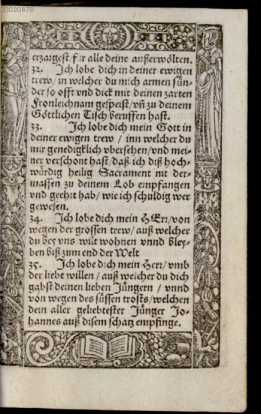 erzaigest für alle deine außerwölten.
32. Ich lobe dich in deiner ewigen
trew, in welcher du mich armen sün-
der so offt vnd dick mit deinen zarten
Fronleichnam gespeist/vñ zu deinem
Göttlichen Tisch beruffen hast.
33. Ich lobe dich mein Gott in
deiner ewigen trew / inn welcher du
mir genedigklich vbersehen/vnd mei-
ner verschont hast daß ich diß hoch-
würdig heilig Sacrament nit der-
massen zu deinem Lob empfangen
vnd geehrt hab/ wie ich schuldig wer
gewesen.
34. Ich lobe dich mein HErr/von
wegen der grossen trew/auß welcher
du bey vns wilt wohnen vnnd bley-
ben biß zum end der Welt
35. Ich lobe dich mein Herr/vmb
der liebe willen / auß welcher du dich
gabst deinen lieben Jüngern / vnnd
von wegen des süssen trosts/welchen
dein aller geliebtester Jünger Jo-
hannes auß disem schatz empfinge.